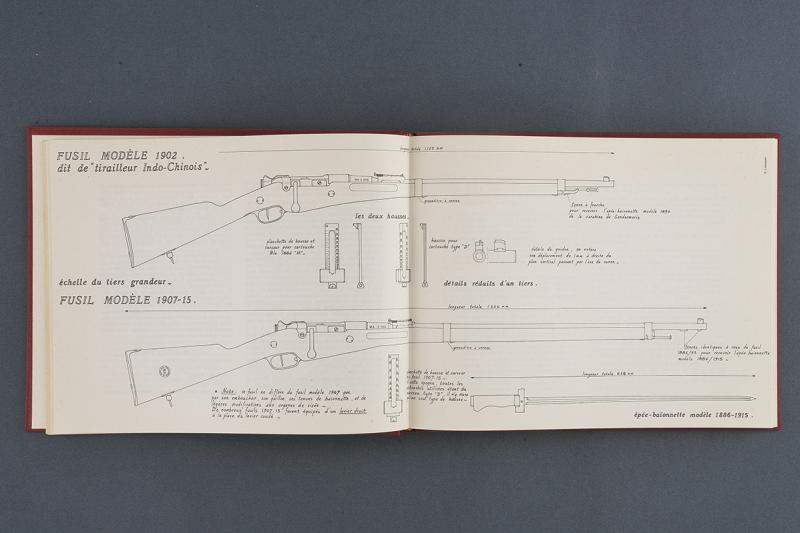 FUSIL MODÈLE 1902.
dit de "tirailleur Indo-Chinois"_
longueur totale 1,125 mm
grenadière à verrou
Tenon à fourche
pour recevoir l'épée-baïonnette modèle 1890
de la carabine de Gendarmerie
les deux hausses.
planchette de hausse et
curseur pour cartouche
Mle 1886 "M"_
hausse pour
cartouche type "D"
détails du guidon, on notera
son déplacement de 1mm à droite du
plan vertical passant par l'axe du canon_
échelle du tiers grandeur_
détails réduits d'un tiers.
FUSIL MODÈLE 1907-15.
longueur totale 1 306 mm
grenadière à verrou
Tenons identiques à ceux du fusil
1886/93 pour recevoir l'épée-baïonnette
modèle 1886/1915_
longueur totale 638 mm
• Note: ce fusil ne diffère du fusil modèle 1907 que
par son embouchoir, son guidon, ses tenons de baïonnette, et de
légères modifications aux organes de visée
De nombreux fusils 1907-15 furent équipés d'un levier droit
à la place du levier coudé_
de hausse et curseur
fusil 1907-15_
cette époque, toutes les
cartouches utilisées étant du
nouveau type "D", il n'y aura
qu'un seul type de hausse_
épée-baïonnette modèle 1886-1915.